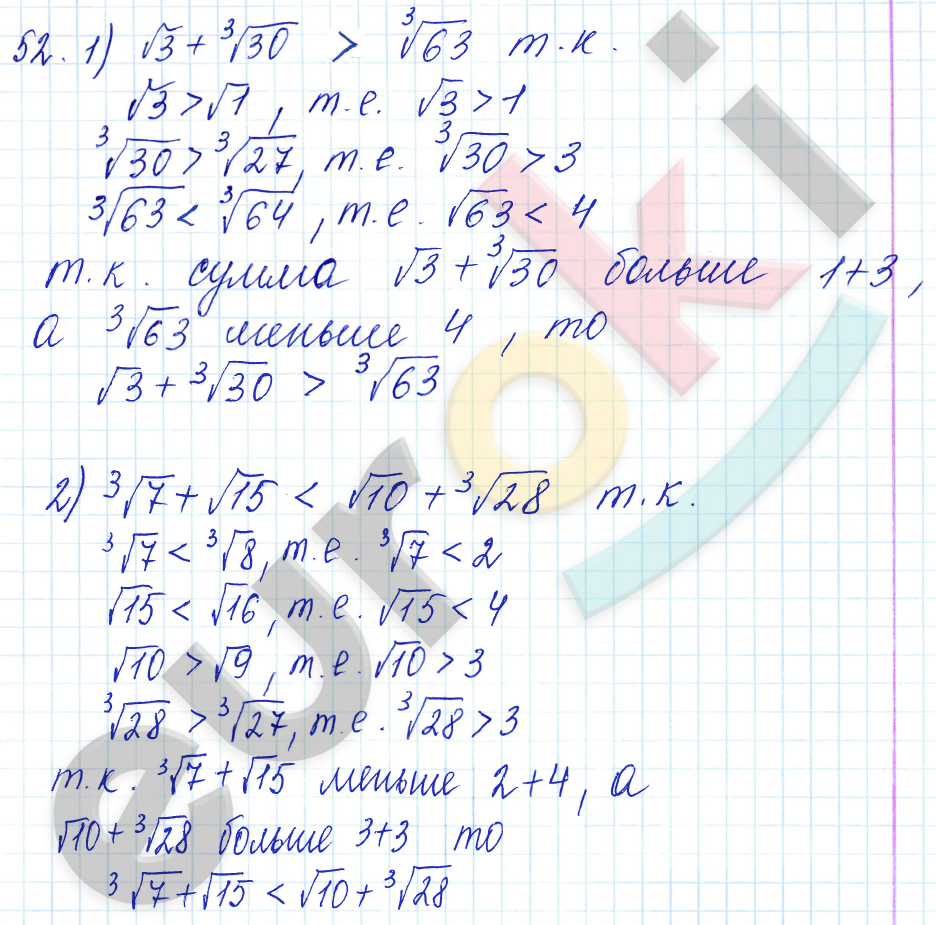 52. 1) √3 + ∛30 > ∛63 т.к.
√3 > √1, т.е. √3 > 1
∛30 > ∛27, т.е. ∛30 > 3
∛63 < ∛64, т.е. √63 < 4
т.к. сумма √3 + ∛30 больше 1+3,
а ∛63 меньше 4, то
√3 + ∛30 > ∛63
2) ∛7 + √15 < √10 + ∛28 т.к.
∛7 < ∛8, т.е. ∛7 < 2
√15 < √16, т.е. √15 < 4
√10 > √9, т.е. √10 > 3
∛28 > ∛27, т.е. ∛28 > 3
т.к. ∛7 + √15 меньше 2+4, а
√10 + ∛28 больше 3+3 то
∛7 + √15 < √10 + ∛28
euroki